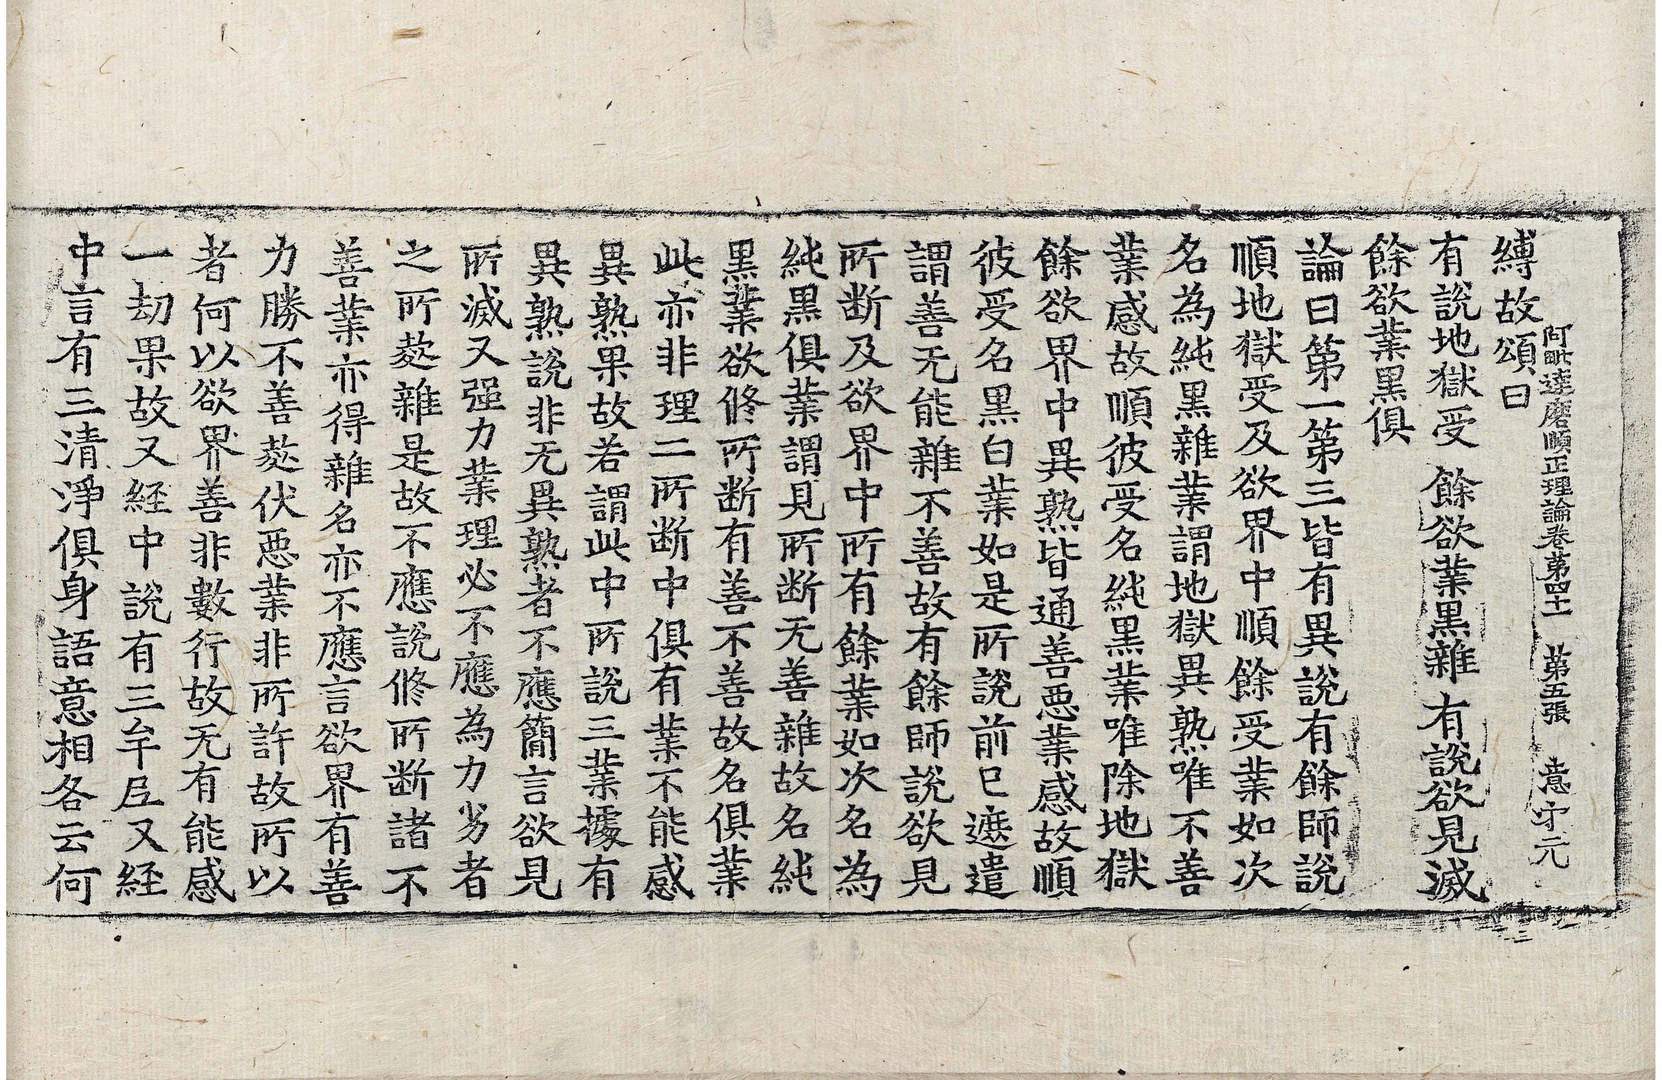 阿毗達磨順正理論卷第四十一　第五張　意　守元
縛故頌曰
有說地獄受　餘欲業黑雜　有說欲見滅
餘欲業黑俱
論曰第一第三皆有異說有餘師說
順地獄受及欲界中順餘受業如次
名為純黑雜業謂地獄異熟唯不善
業感故順彼受名純黑業唯除地獄
餘欲界中異熟皆通善惡業感故順
彼受名黑白業如是所說前已遮遣
謂善无能雜不善故有餘師說欲見
所断及欲界中所有餘業如次名為
純黑俱業謂見所断无善雜故名純
黑業欲修所断有善不善故名俱業
此亦非理二所断中俱有業不能感
異熟果故若謂此中所說三業據有
異熟說非无異熟者不應簡言欲見
所滅又强力業理必不應為力劣者
之所㱠雜是故不應說修所断諸不
善業亦得雜名亦不應言欲界有善
力勝不善㱠伏惡業非所許故所以
者何以欲界善非數行故无有能感
一劫果故又経中說有三牟尼又経
中言有三清淨俱身語意相各云何